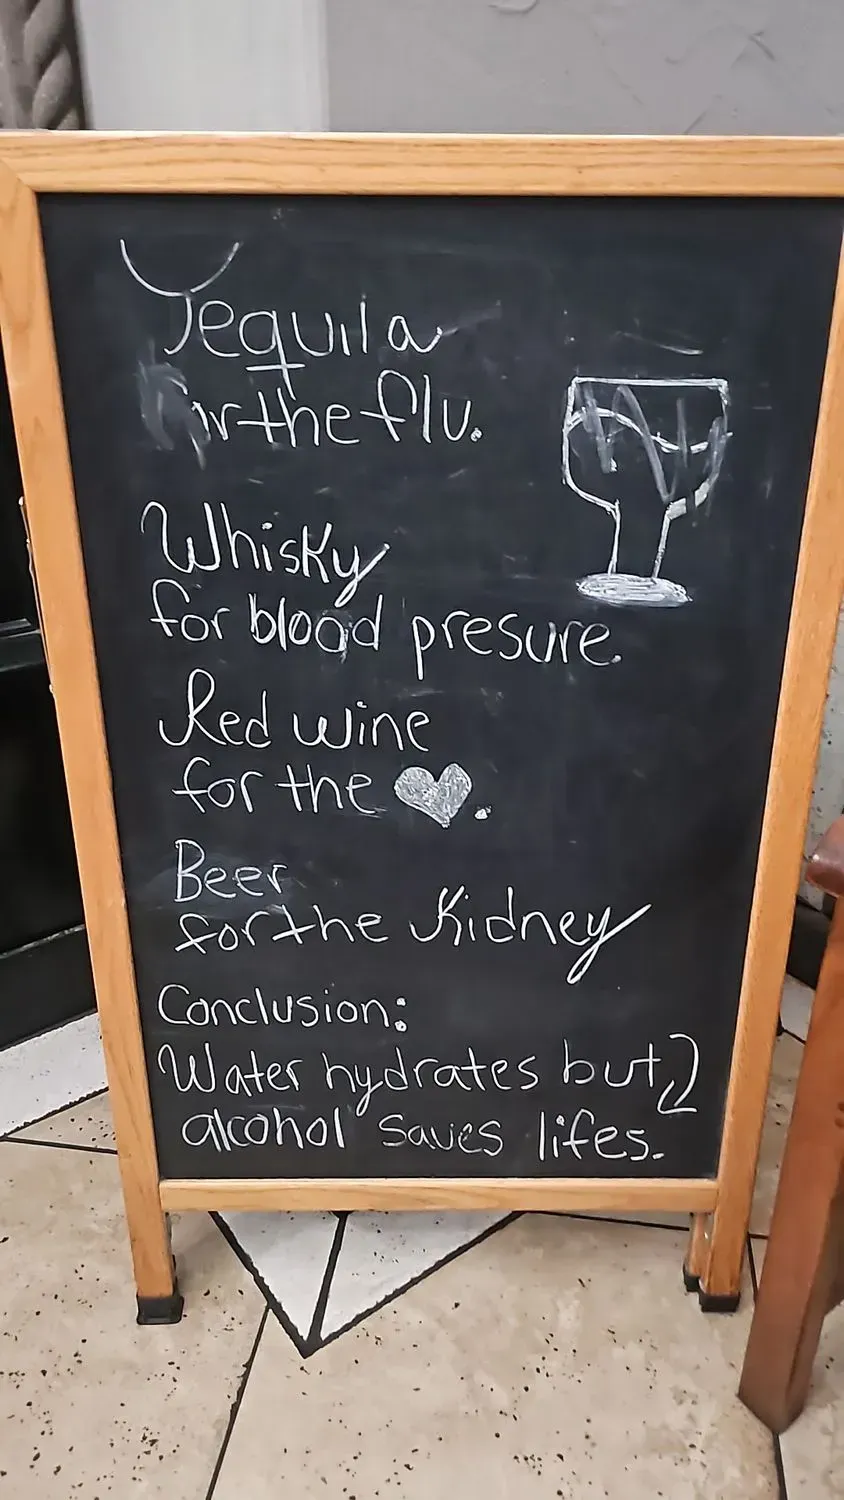 Tequila
for the flu.
Whisky
for blood presure.
Red wine
for the
Beer
for the Kidney
Conclusion:
Water hydrates but
alcohol saves lifes.